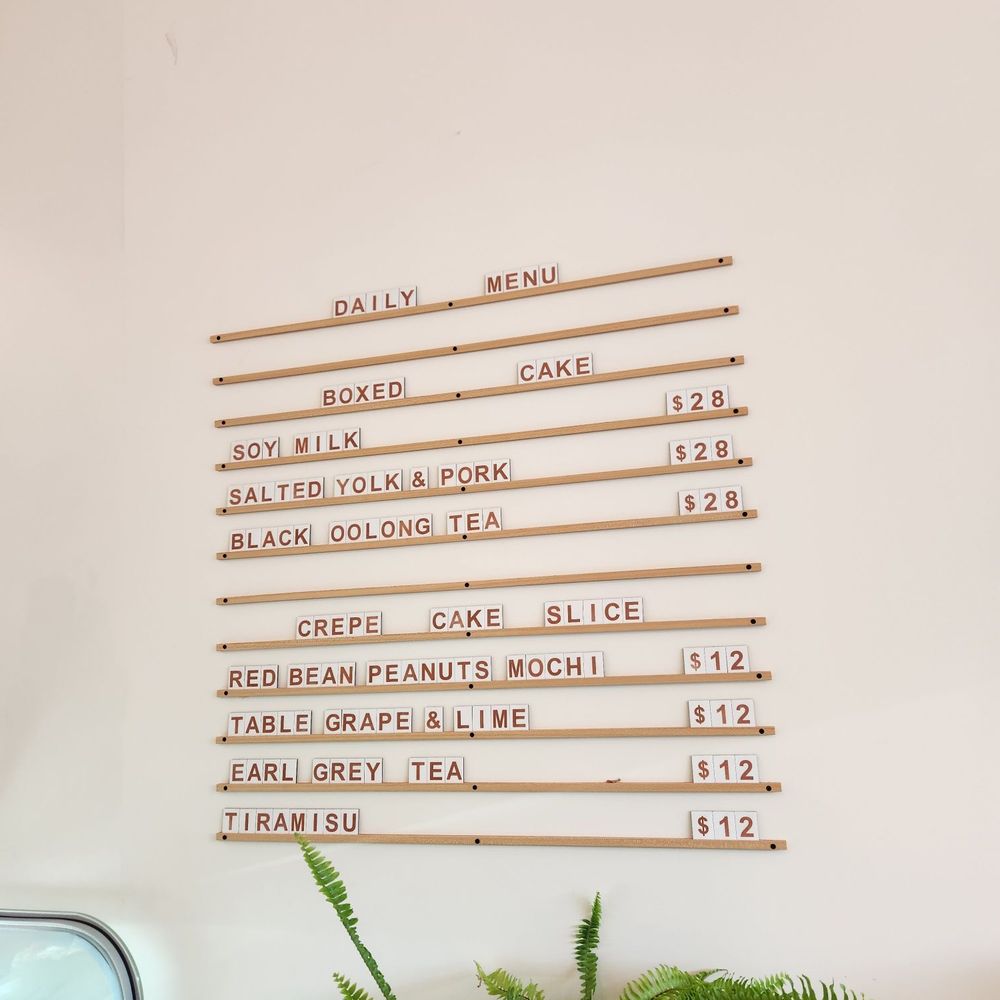 DAILY MENU
BOXED CAKE
SOY MILK $28
SALTED YOLK & PORK $28
BLACK OOLONG TEA $28
CREPE CAKE SLICE
RED BEAN PEANUTS MOCHI $12
TABLE GRAPE & LIME $12
EARL GREY TEA $12
TIRAMISU $12